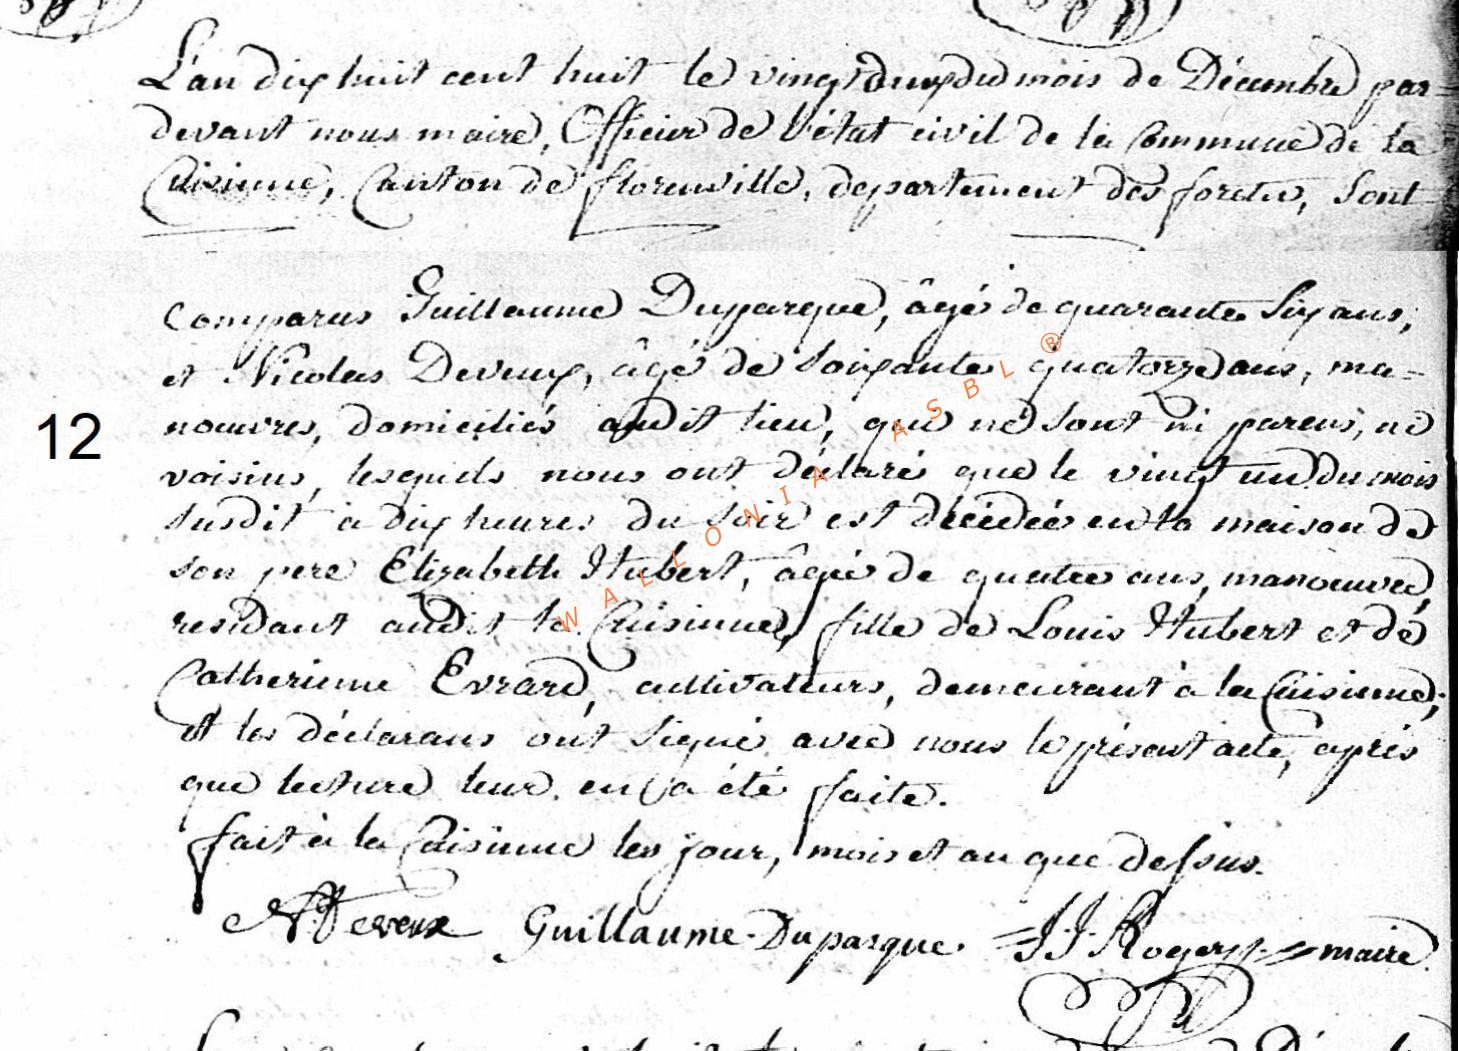 L'an dix huit cent huit le vingt deux du mois de Décembre par=
devant nous maire, Officier de l'état civil de la Commune de la
Cuisinne, Canton de florenville, departement des foretes, sont
comparus Guillaume Duparque, âgé de quarante six ans,
et Nicolas Deveux, âgé de soixante quatorze ans, ma-
nouvres, domiciliés audit lieu, que ne sont ni parens, ni
voisins, lesquels nous ont déclaré que le vingt un du mois
susdit à dix heures du soir est décédée en la maison de
son pere Elizabeth Hubert, âgée de quatre ans, manouvre,
residant audit la Cuisinne, fille de Louis Hubert et de
Catherinne Evrard, cultivateurs, demeurant à la Cuisinne;
et les déclarans ont signé avec nous le présent acte, après
que lecture leur en a été faite.
fait à la Cuisinne les jour, mois et an que dessus.
N Deveux Guillaume Duparque J J Rogery maire
12
WALLONIA ASBL ®